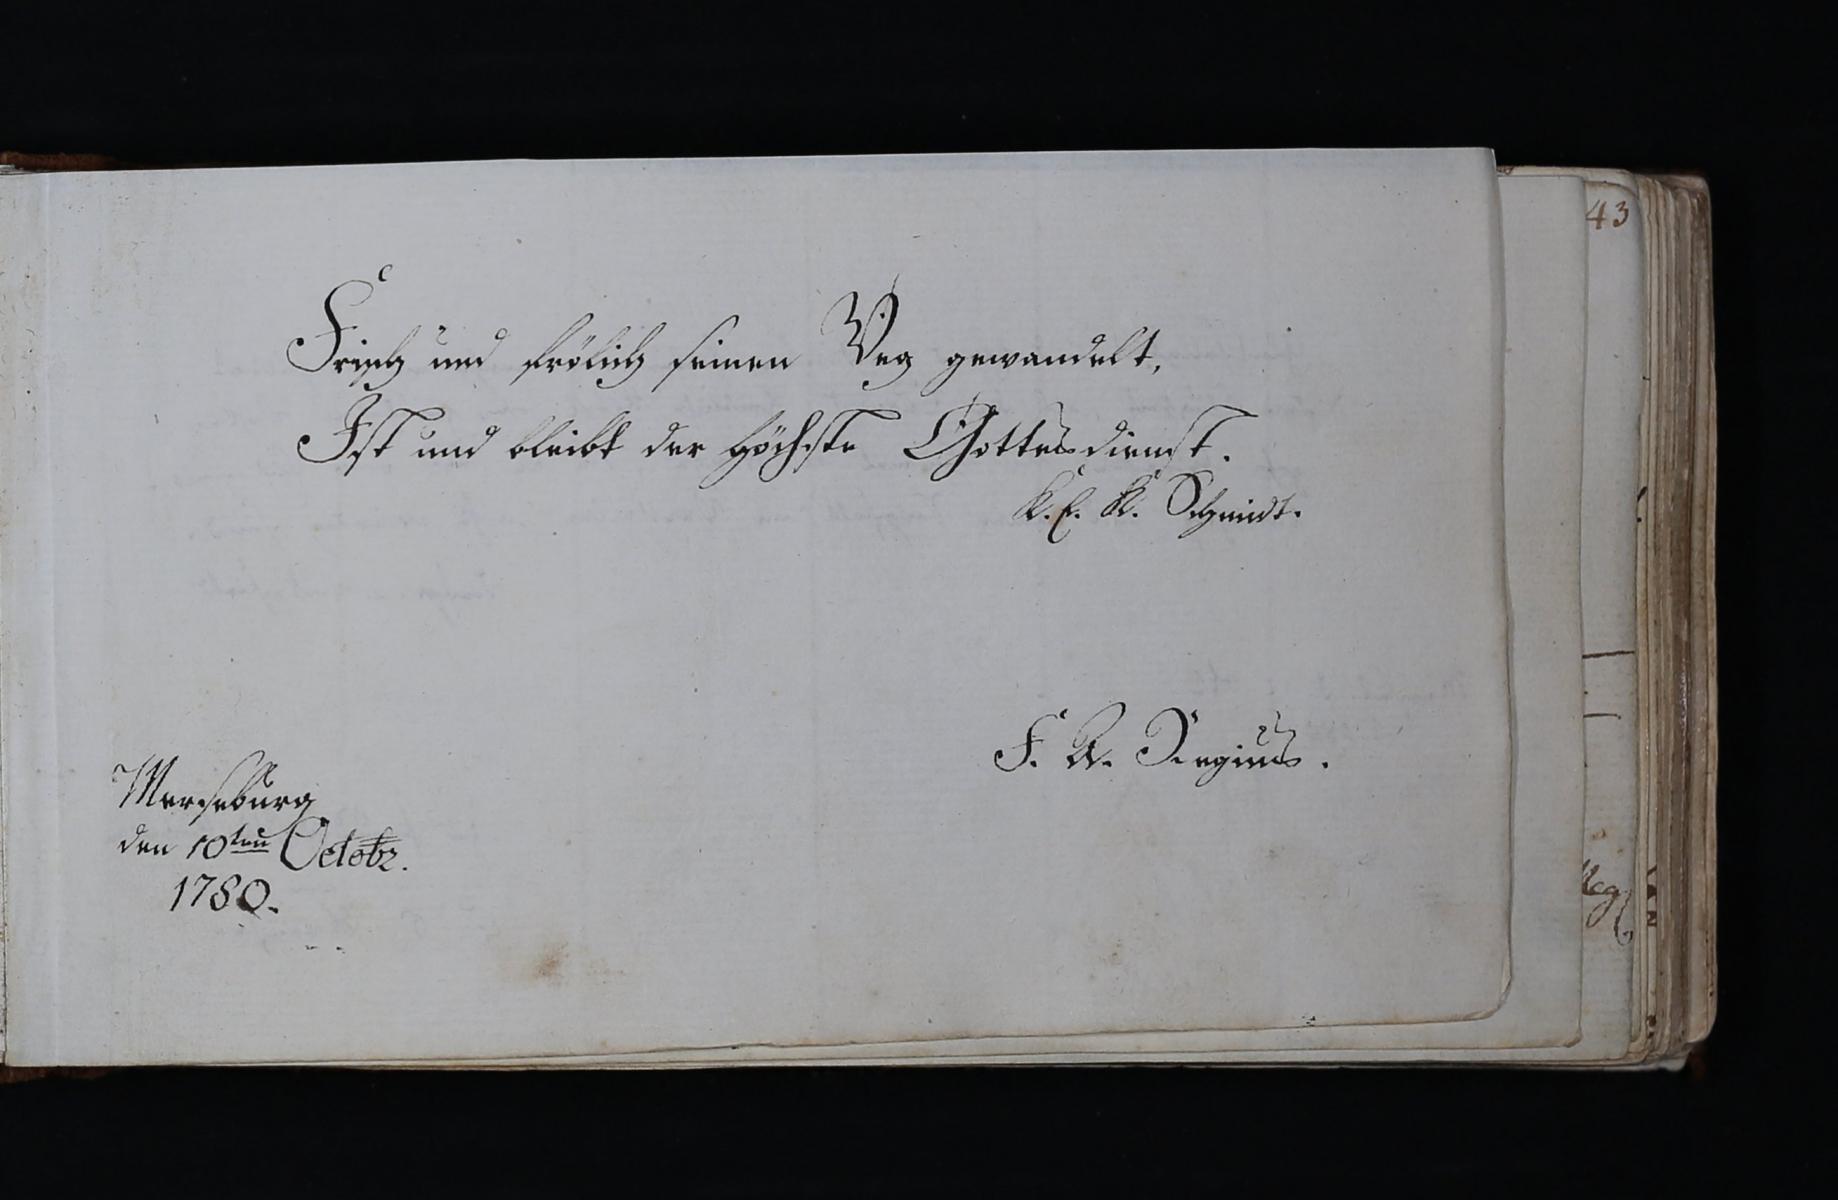 Frisch und frölich seinen Weg gewandelt,
Ist und bleibt der höchste Gottesdienst.
K. E. K. Schmidt.
F. W. Regius.
Merseburg
den 10ten Octobr.
1780.
43